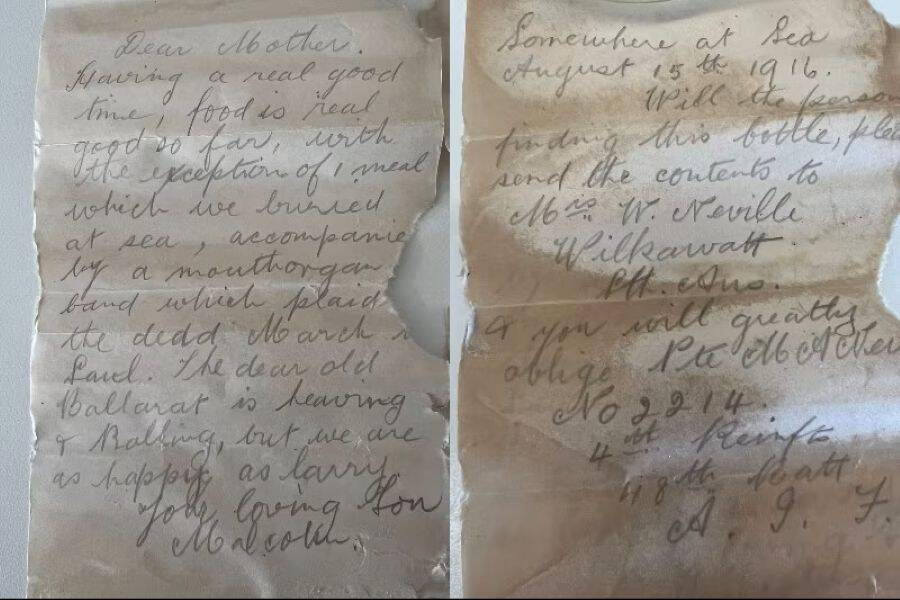 Dear Mother.
Having a real good
time, food is real
good so far, with
the exception of 1 meal
which we buried
at sea, accompanie
by a mouthorgan
band which plaid
the dedd March
Saul. The dear old
Ballarat is heaving
& Rolling, but we are
as happy as larry.
Your loving Son
Malcolm.
Somewhere at Sea
August 15th 1916.
Will the person
finding this bottle, plea
send the contents to
Mrs W. Neville
Wilkawatt
Sth. Aus.
& you will greatly
oblige Pte M A Nev
No 2214.
4th Reinfts
48th Batt
A. I. F.